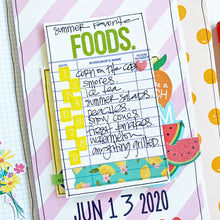 summer favorite
FOODS.
DATE
BORROWER'S NAME
1 corn on the cob
2 smores
3 ice tea
4 summer salads
5 peaches
6 snow cones
7 fresh tomatoes
8 watermelon
9 anything grilled
JUN 13 2020